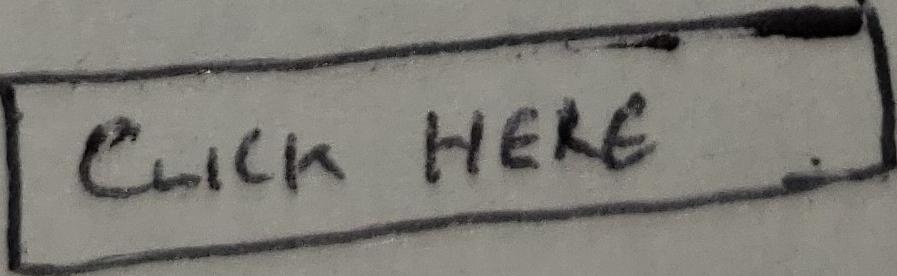 CLICK HERE